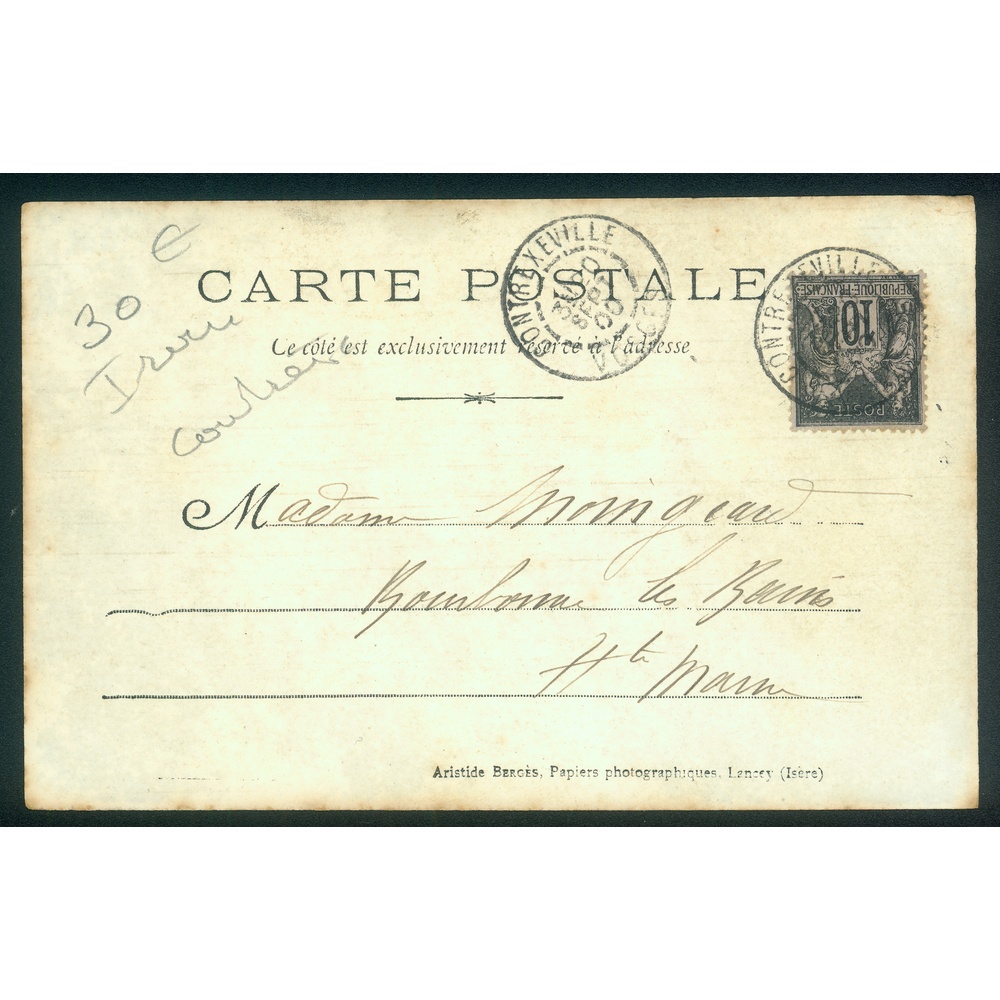 30 €
CARTE POSTALE
Ce côté est exclusivement réservé à l'adresse
CONTREXEVILLE
SEPT
00
VOSGES
CONTREXEVILLE
RÉPUBLIQUE FRANÇAISE
10
POSTE
Madame Moingeard
Bourbonne les Bains
Hte Marne
Aristide BERGÈS, Papiers photographiques, Lancey (Isère)